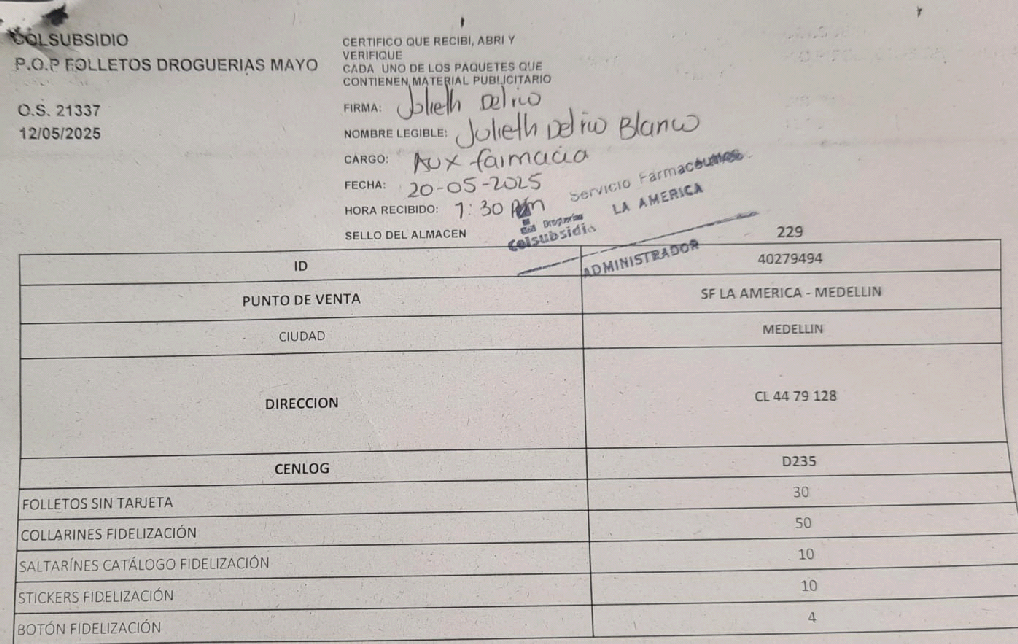 COLSUBSIDIO
P.O.P FOLLETOS DROGUERIAS MAYO
O.S. 21337
12/05/2025
CERTIFICO QUE RECIBI, ABRI Y
VERIFIQUE
CADA UNO DE LOS PAQUETES QUE
CONTIENEN MATERIAL PUBLICITARIO
FIRMA: Julieth Del rio
NOMBRE LEGIBLE: Julieth Del rio Blanco
CARGO: Aux farmacia
FECHA: 20-05-2025
HORA RECIBIDO: 1:30 Pm
SELLO DEL ALMACEN
Servicio Farmaceutico
LA AMERICA
Droguerias
Colsubsidio
ADMINISTRADOR
229
ID 40279494
PUNTO DE VENTA SF LA AMERICA - MEDELLIN
CIUDAD MEDELLIN
DIRECCION CL 44 79 128
CENLOG D235
FOLLETOS SIN TARJETA 30
COLLARINES FIDELIZACIÓN 50
SALTARÍNES CATÁLOGO FIDELIZACIÓN 10
STICKERS FIDELIZACIÓN 10
BOTÓN FIDELIZACIÓN 4